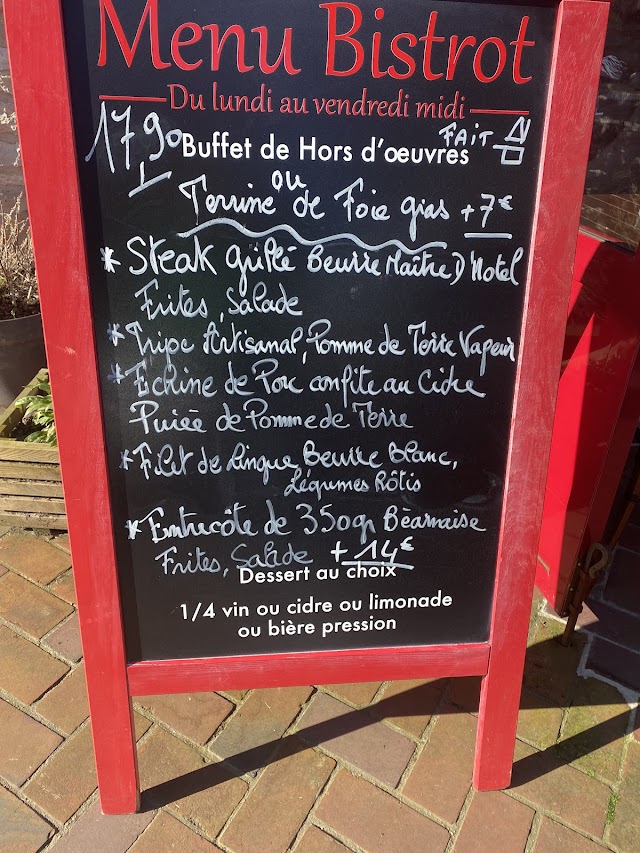 Menu Bistrot
Du lundi au vendredi midi
17,90
FAIT
Buffet de Hors d'oeuvres
ou
Terrine de Foie gras + 7€
* Steak grillé Beurre Maître D'Hotel
Frites, Salade
* Tripe Artisanal, Pomme de Terre Vapeur
* Echine de Porc confite au Cidre
Purée de Pomme de Terre
* Filet de Lingue Beurre Blanc,
Légumes Rôtis
* Entrecôte de 350gr Béarnaise
Frites, Salade + 14€
Dessert au choix
1/4 vin ou cidre ou limonade
ou bière pression